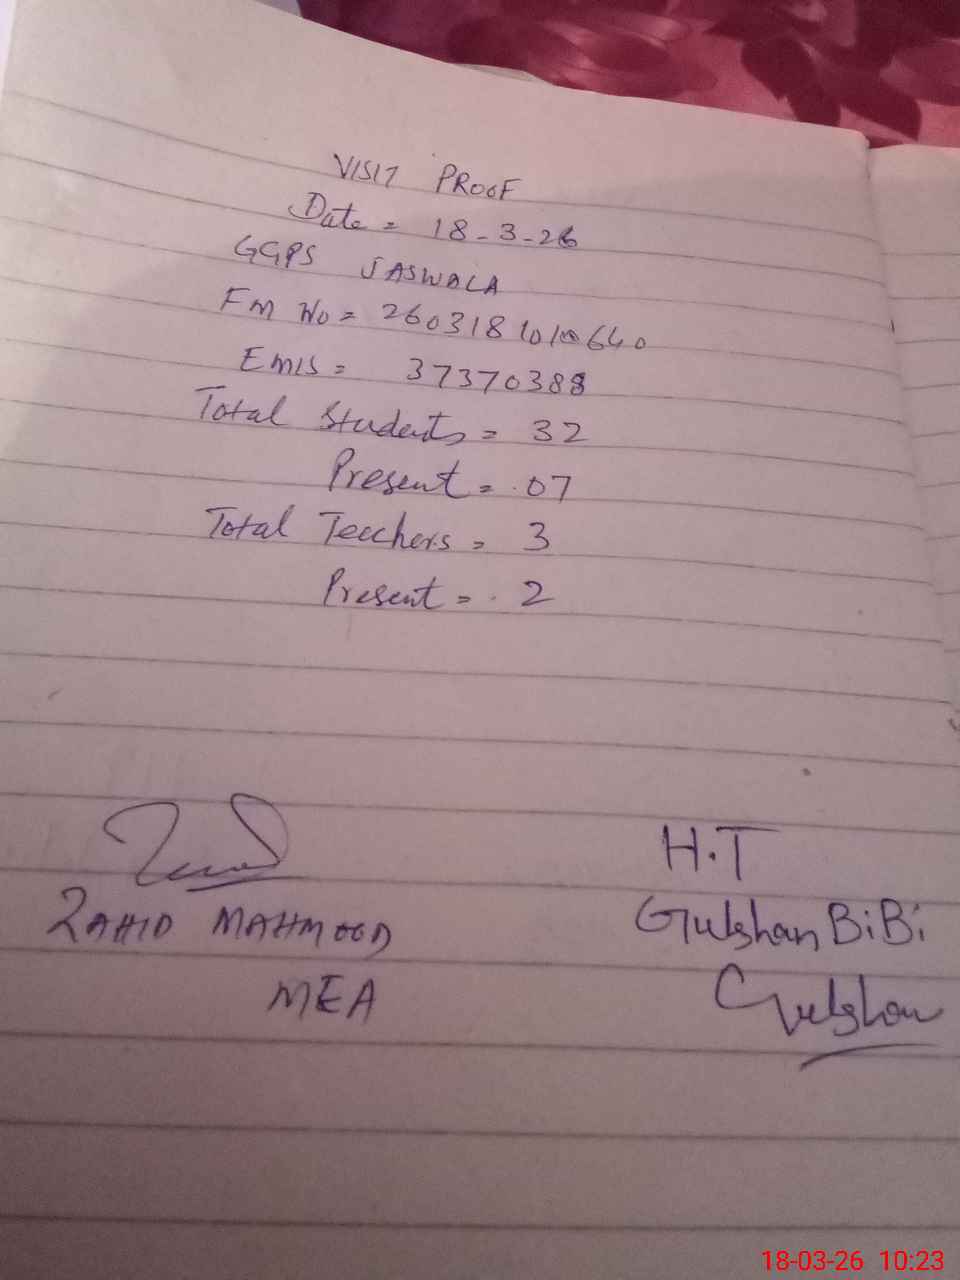 VISIT PROOF
Date = 18-3-26
GGPS JASWALA
FM No =
Emis = 37370388
Total Students = 32
Present = 07
Total Teechers = 3
Present = 2
ZAHID MAHMOOD
MEA
H.T
Gulshan BiBi
Gulshan
18-03-26 10:23